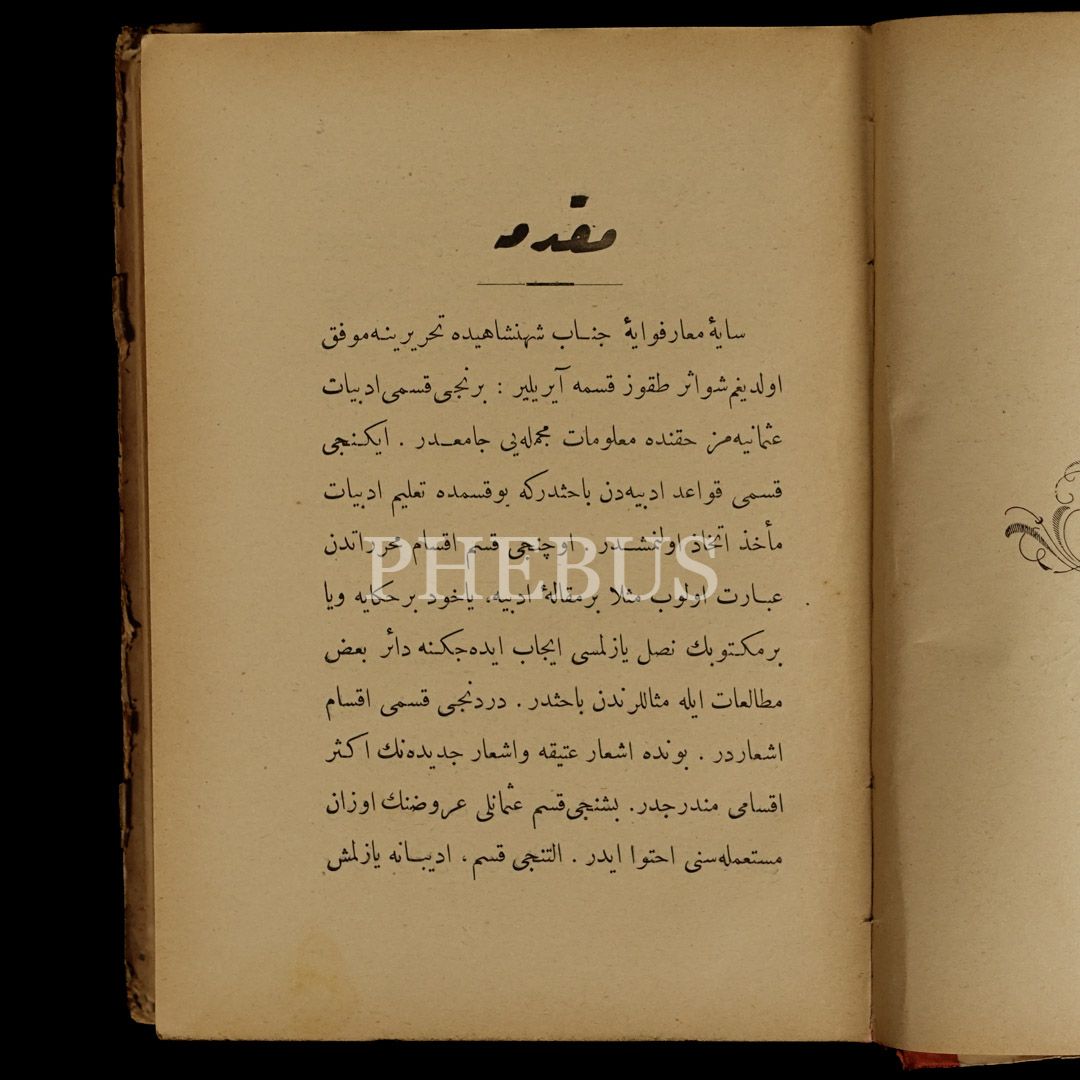 مقدمه
سایهٔ معارفوایهٔ جنـاب شهنشاهیده تحریرینه موفق
اولدیغم شواثر طقوز قسمه آیریلیر : برنجی قسمی ادبیات
عثمانیه مز حقنده معلومات مجمله یی جامعـدر . ایکـنجی
قسمی قواعد ادبیه دن باحثدرکه بوقسمده تعلیم ادبیات
مأخذ اتخاذ اولنمشـدر . اوچنجی قسم اقسام محرراتدن
عبـارت اولوب مثلا برمقالهٔ ادبیه، یاخود برحکایه ویا
برمکـتوبك نصل یازلمسی ایجاب ایده جکنه دائر بعض
مطالعات ایله مثاللرندن باحثدر . دردنجی قسمی اقسام
اشعاردر . بونده اشعار عتیقه واشعار جدیده نك اکثر
اقسامی مندرجدر. بشنجی قسم عثمانلی عروضنك اوزان
مستعمله سنی احتوا ایدر . التنجی قسم، ادیبـانه یازلمش
PHEBUS